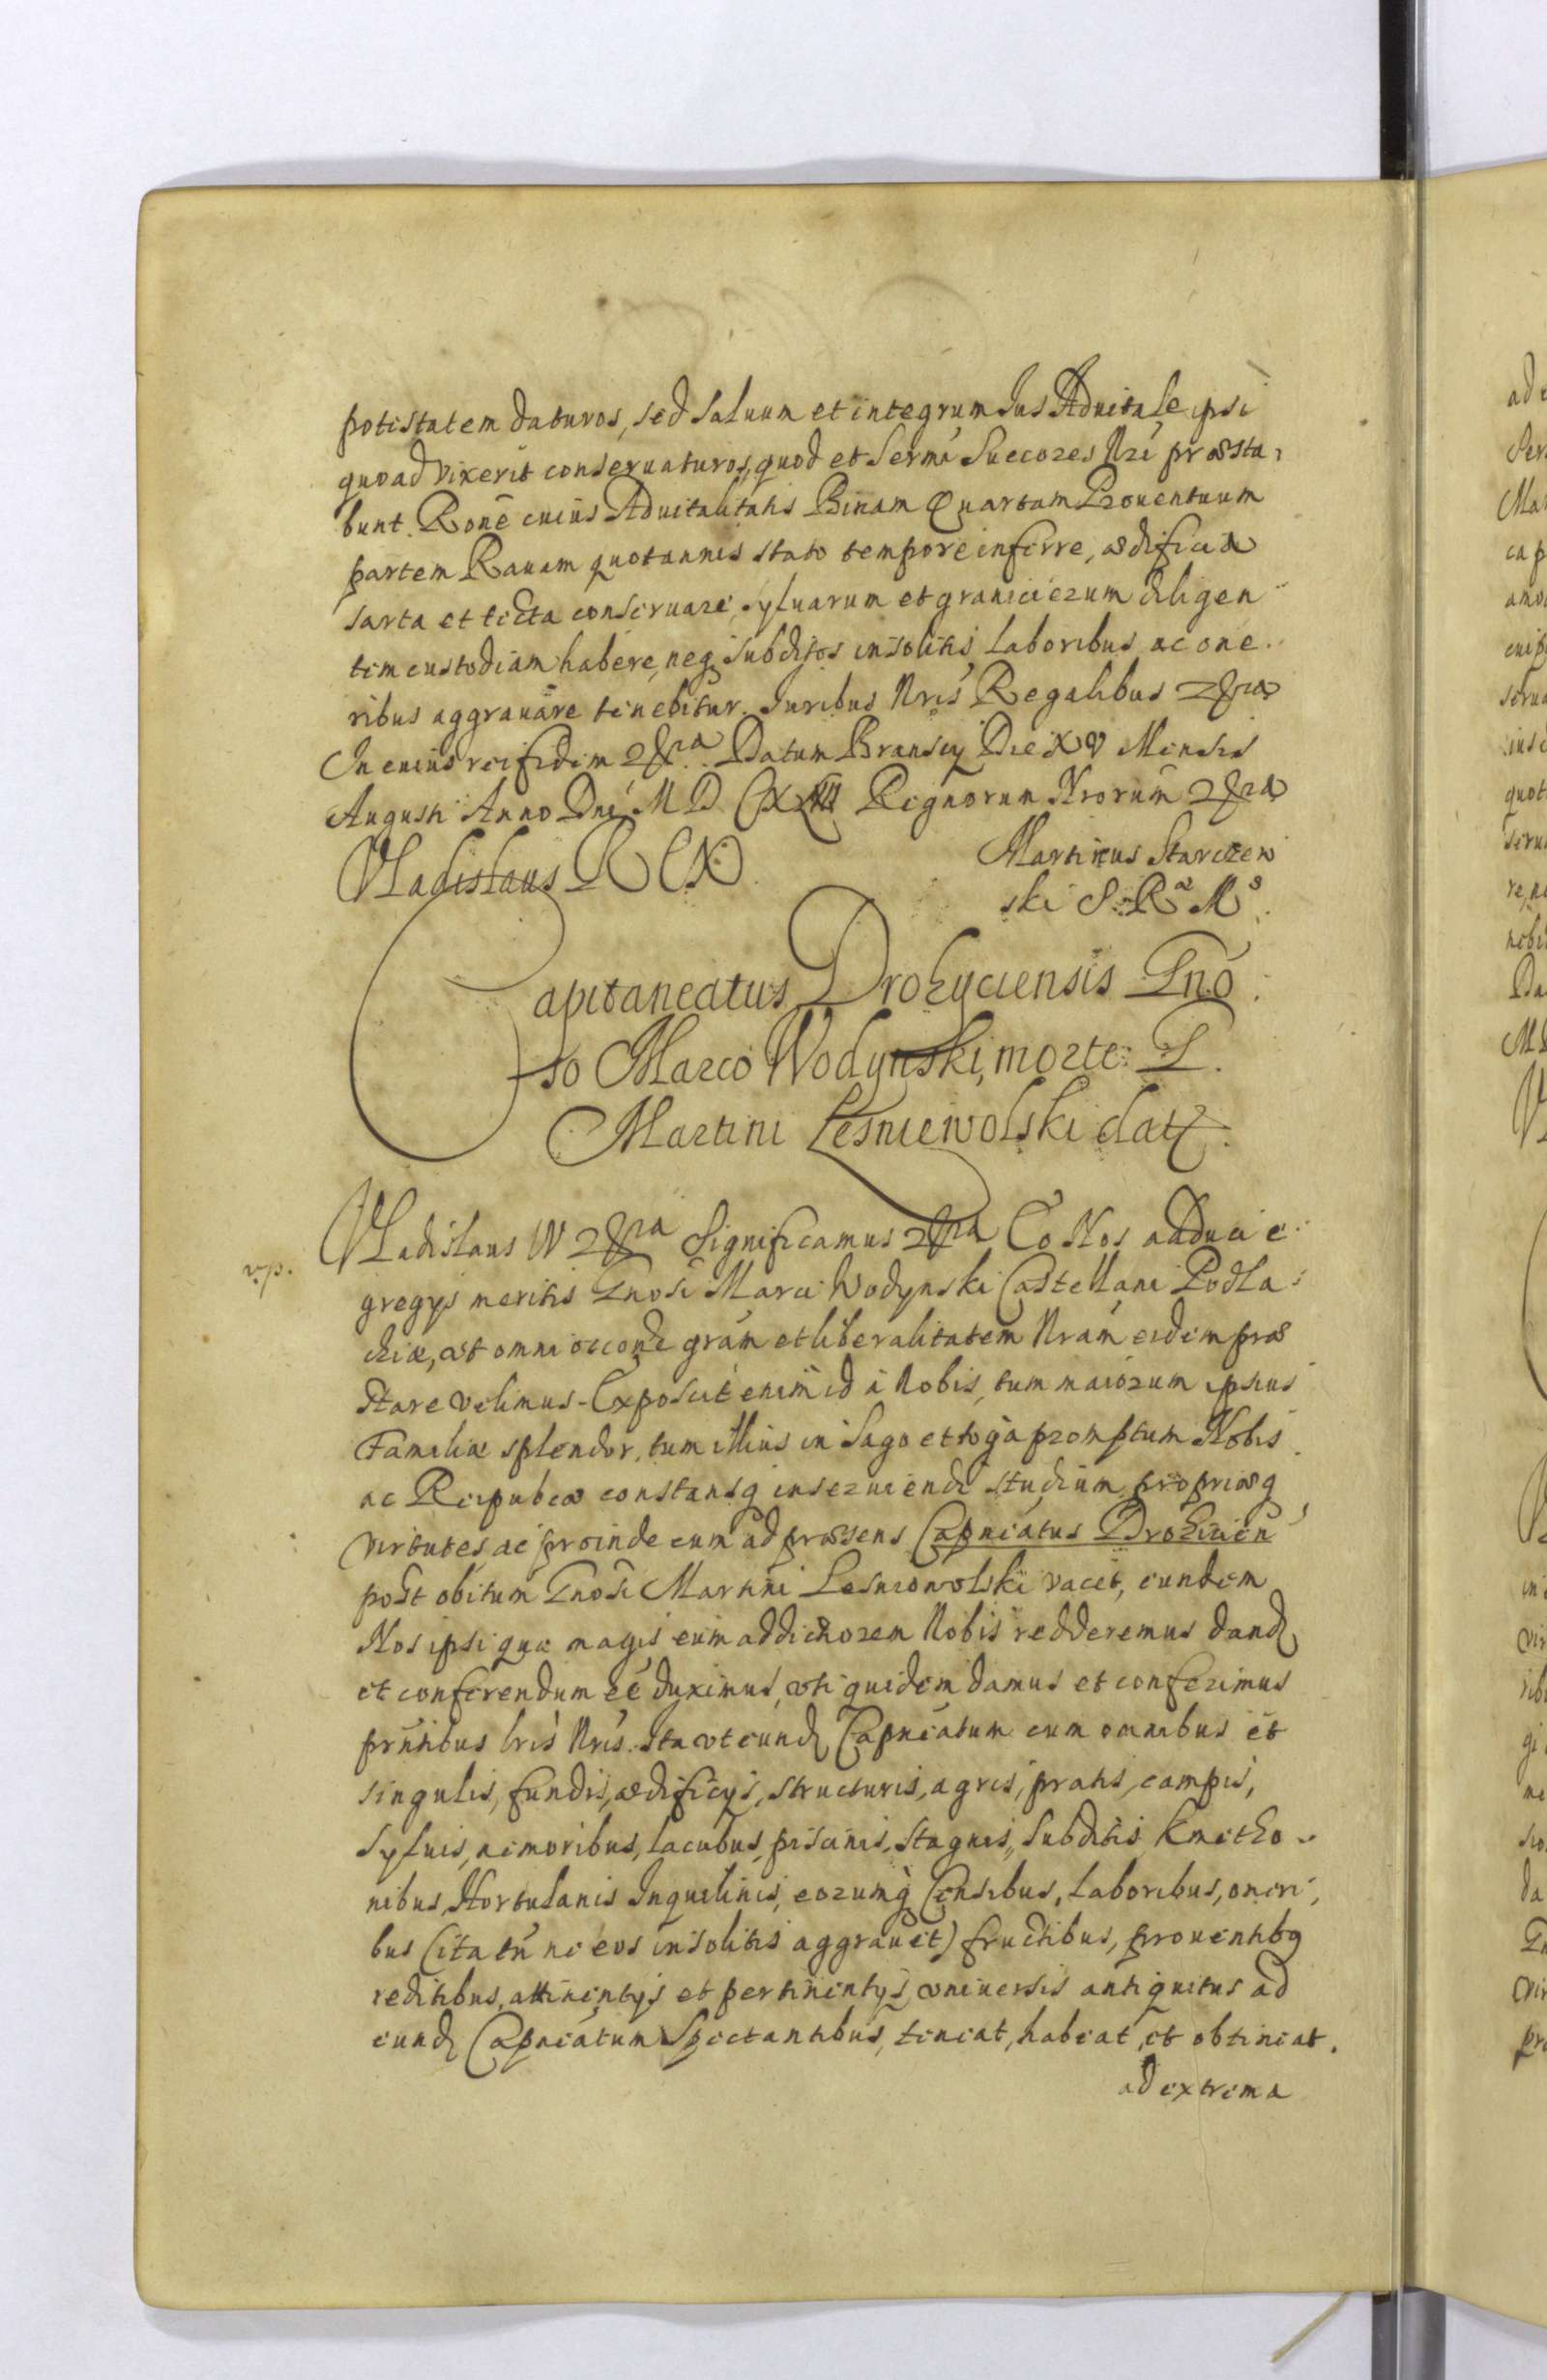 potestatem daturos, sed saluum et integrum Jus Aduitale ipsi
quoad vixerit conseruaturos, quod et Sermi Succores Nri præsta:
bunt. Rone cuius Aduitalitatis Binam Quartam Prouentuum
partem Rauam quotannis stato tempore inferre, ædificia
sarta et tecta conseruare, syluarum et granicierum diligen:
tem custodiam habere, neq subditos insolitis laboribus ac one:
ribus aggrauare tenebitur. Juribus Nris Regalibus
In cuius rei fidem Datum Bransy Die XV Mensis
Augusti Anno Dni M D Regnorum Nrorum
Vladislaus REX
Martinus Starczew
ski S. Ræ Ms.
Capitaneatus Drohyciensis Gno:
so Marco Wodynski, morte G.
Martini Lesniewolski datq.
Vladislaus IV Significamus Eo Nos adduci e:
np.
gregijs meritis Gnosi Marci Wodynski Castellani Podla:
chiæ, vt omni occone gram et liberalitatem Nram eidem præ
stare velimus. Exposcit enim id à Nobis, tum maiorum ipsius
Familiæ splendor, tum illius in sago et toga promptum Nobis
ac Reipubcæ constansq inseruiendi studium propriæq
virtutes ac proinde cum ad præsens Capneatus Drohicien
post obitum Gnosi Martini Lesniowolski vacet, eundem
Nos ipsi quo magis eum addictiorem Nobis redderemus dand
et conferendum eé duximus, vti quidem damus et conferimus
prntibus lris Nris. Ita vt eund Capneatum cum omnibus et
singulis, fundis, ædificijs, structuris, agris, pratis, campis,
Syluis, nemoribus, lacubus, piscinis, stagnis, subditis Kmetho:
nibus, Hortulanis Inquilinis, eorumq Censibus, laboribus, oneri:
bus (ita tn ne eos insolitis aggrauet) fructibus, prouentibq
reditibus, attinentijs et pertinentijs vniuersis antiquitus ad
eund Capneatum Spectantibus, teneat, habeat, et obtineat.
ad extrema